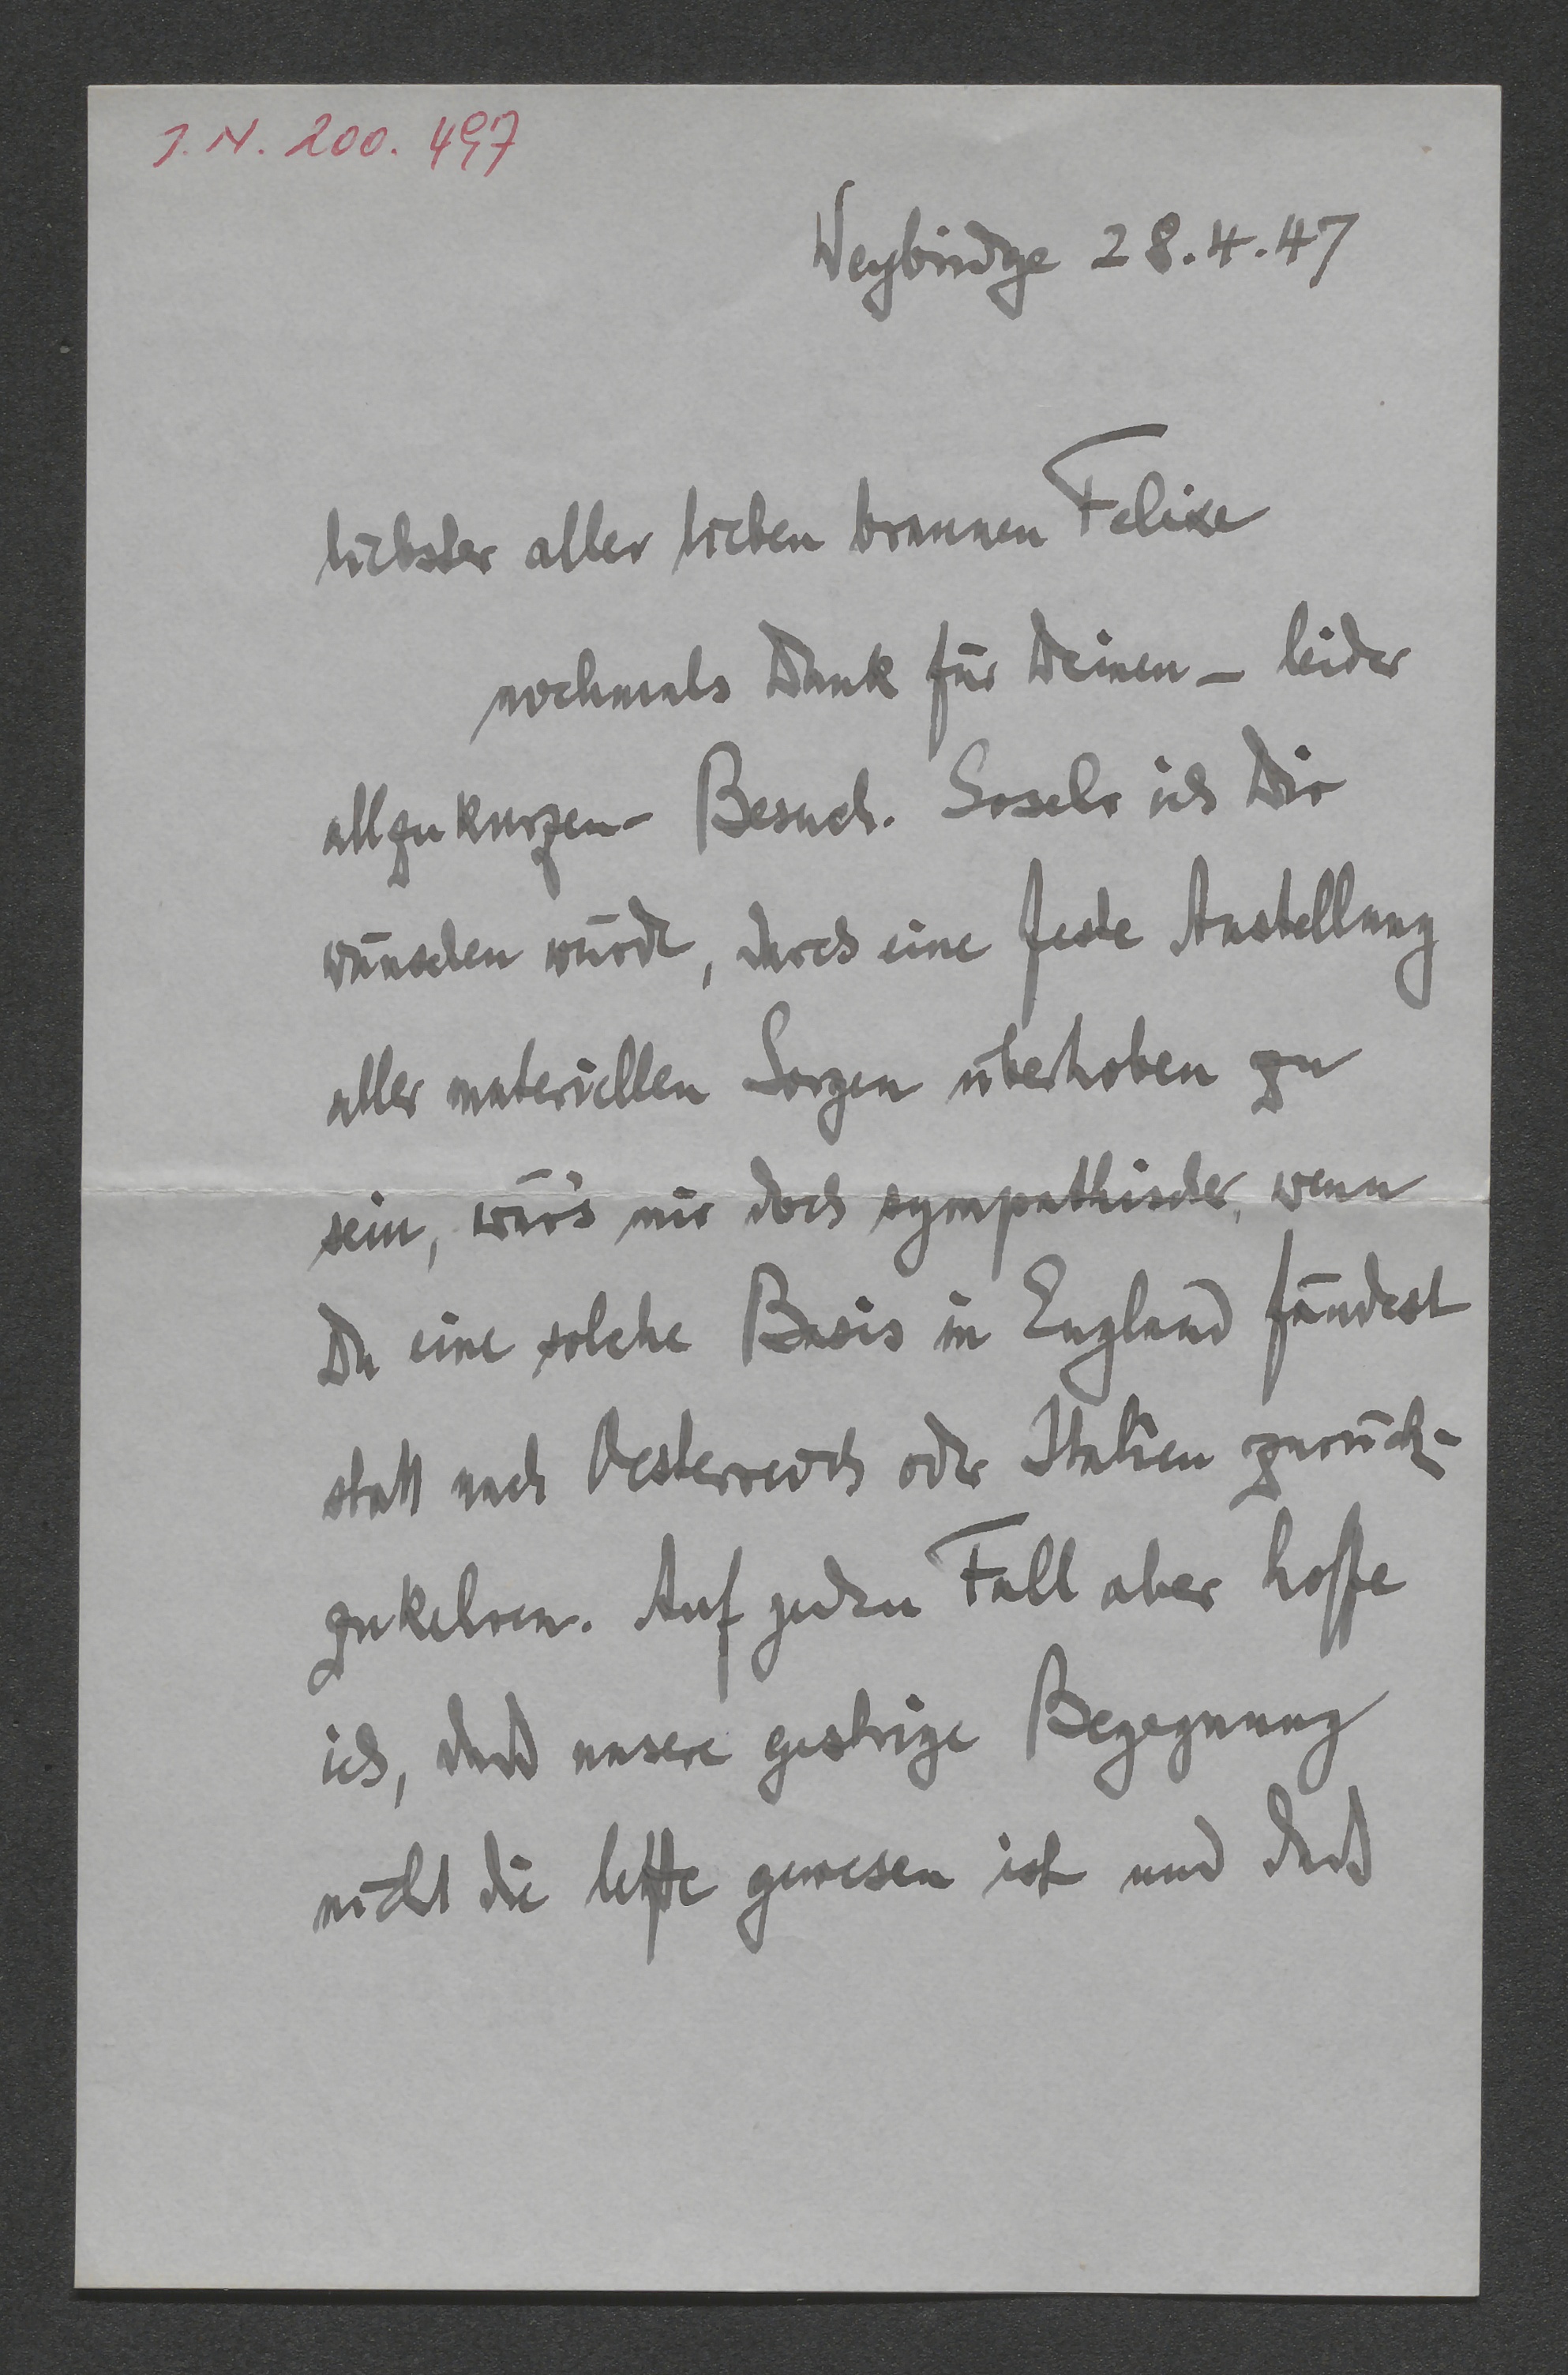 J. N. 200. 497
Weybridge 28.4.47
liebster aller lieben braunen Felixe
nochmals Dank für Deinen – leider
allzukurzen – Besuch. Sosehr ich Dir
wünschen würde, durch eine feste Anstellung
aller materiellen Sorgen überhoben zu
sein, wär's mir doch sympathischer, wenn
Du eine solche Basis in England fändest
statt nach Oesterreich oder Italien zurück-
zukehren. Auf jeden Fall aber hoffe
ich, daß unsere gestrige Begegnung
nicht die letzte gewesen ist und daß